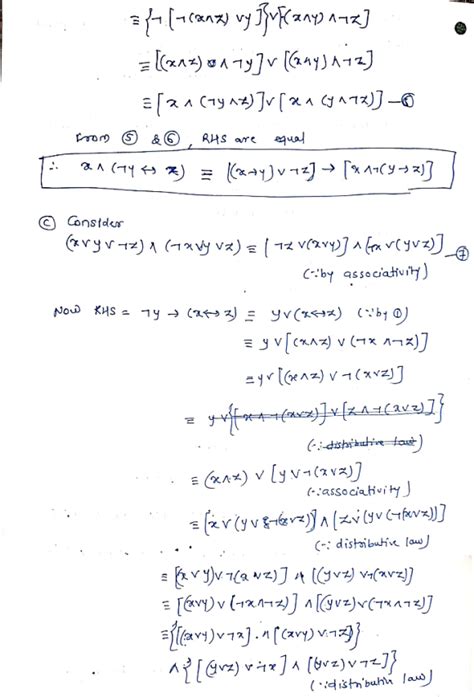 ≡ {¬[¬(x∧z) ∨y]}∨[(x∧y)∧¬z]
≡ [(x∧z) ∧¬y]∨ [(x∧y)∧¬z]
≡ [x ∧ (¬y∧z)]∨[x ∧ (y∧¬z)] —⑥
From ⑤ & ⑥, RHS are equal
∴ x∧(¬y ↔ z) ≡ [(x→y)∨¬z] → [x∧¬(y→z)]
ⓒ Consider
(x∨y∨¬z) ∧ (¬x∨y∨z) ≡ [¬z∨(x∨y)]∧[¬x∨(y∨z)] —⑦
(∵by associativity)
Now RHS = ¬y → (x↔z) ≡ y∨(x↔z) (∵by ①)
≡ y∨[(x∧z) ∨ (¬x ∧¬z)]
≡ y∨[(x∧z) ∨ ¬(x∨z)]
≡ y∨{[x∧¬(x∨z)]∨[z∧¬(x∨z)]}
(∵distributive law)
≡ (x∧z) ∨ [y∨¬(x∨z)]
(∵associativity)
≡ [x∨(y∨¬(x∨z))]∧[z∨(y∨(¬(x∨z))]
(∵ distributive law)
≡ [(x∨y)∨¬(x∨z)] ∧ [(y∨z) ∨¬(x∨z)]
≡ [(x∨y)∨(¬x∧¬z)] ∧[(y∨z)∨(¬x∧¬z)]
≡{[(x∨y)∨¬x]∧[(x∨y)∨¬z]}
∧{[(y∨z)∨¬x]∧[(y∨z)∨¬z]}
(∵distributive law)